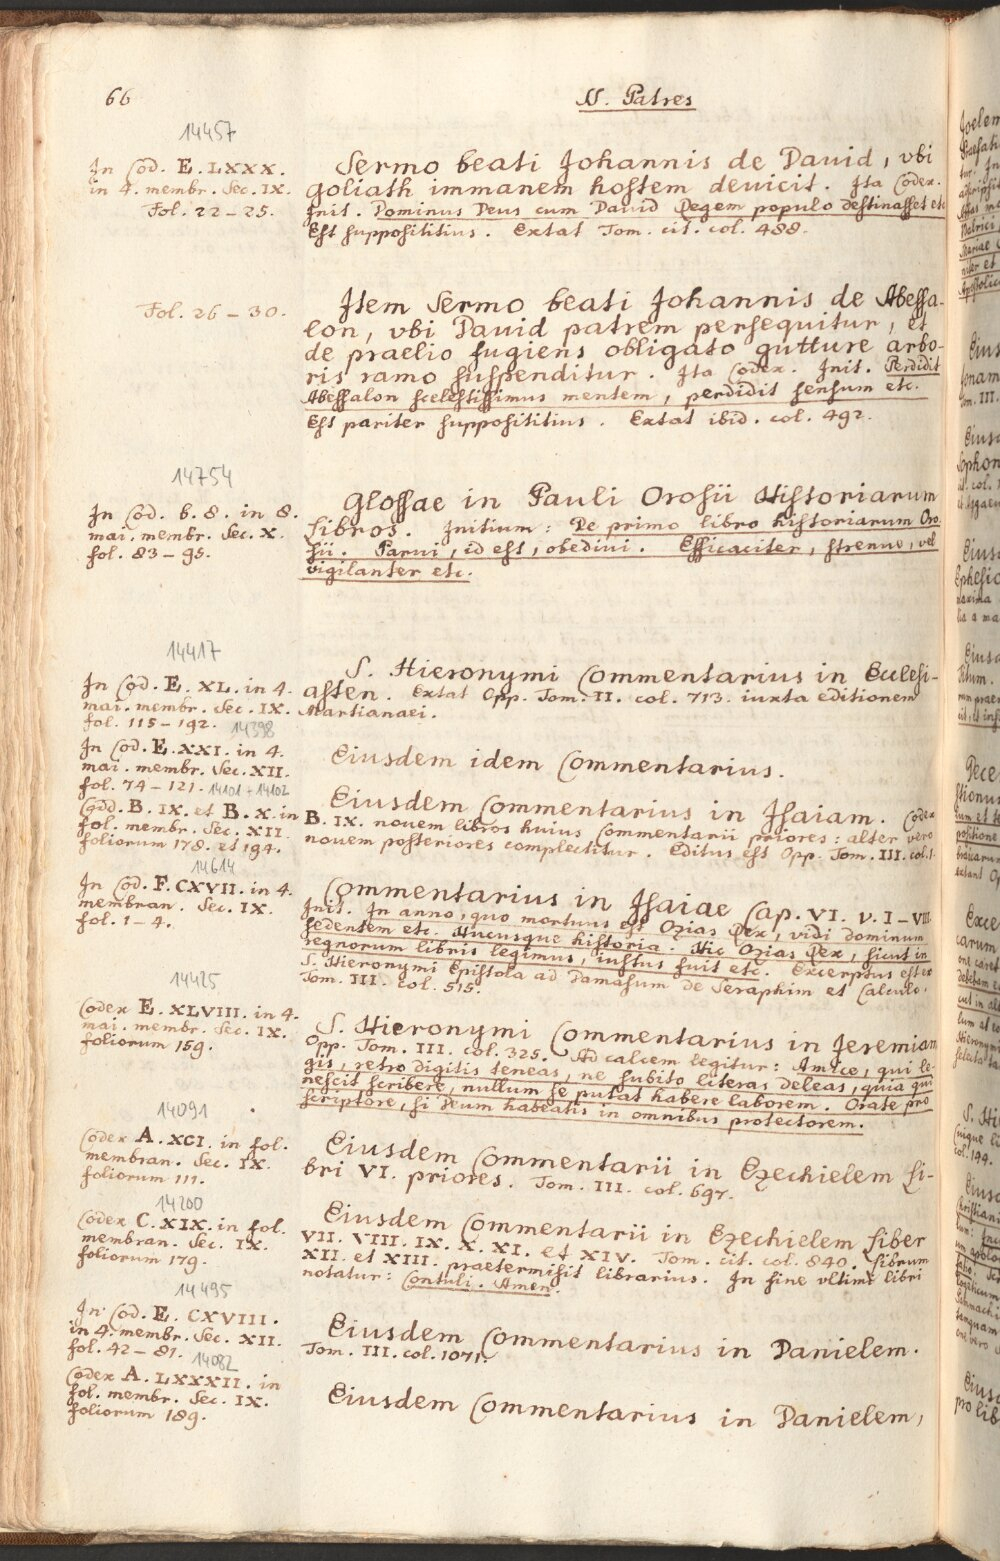 66
N. Patres
14457
In Cod. E. LXXX.
in 4. membr. Sec. IX.
Fol. 22 – 25.
Sermo beati Johannis de Dauid, vbi
goliath immanem hostem deuicit. Ita Codex.
Init. Dominus Deus cum Dauid Regem populo destinasset etc
Est supposititius. Extat Tom. cit. col. 488.
Fol. 26 – 30.
Item Sermo beati Johannis de Abessa-
lon, vbi Dauid patrem persequitur, et
de praelio fugiens obligato gutture arbo-
ris ramo suspenditur. Ita Codex. Init. Perdidit
Abessalon scelestissimus mentem, perdidit sensum etc.
Est pariter supposititius. Extat ibid. col. 492.
14754
In Cod. b. 8. in 8.
mai. membr. Sec. X.
fol. 83 – 95.
Glossae in Pauli Orosii Historiarum
Libros. Initium: De primo libro historiarum Oro-
sii. Parui, id est, obediui. Efficaciter, strenue, vel
vigilanter etc.
14417
In Cod. E. XL. in 4.
mai. membr. Sec. IX.
fol. 115 – 192.
S. Hieronymi Commentarius in Ecclesi-
asten. Extat Opp. Tom. II. col. 713. iuxta editionem
Martianaei.
14398
In Cod. E. XXI. in 4.
mai. membr. Sec. XII.
fol. 74 – 121.
Eiusdem idem Commentarius.
14101 + 14102
Codd. B. IX. et B. X. in
fol. membr. Sec. XII.
foliorum 178. et 194.
Eiusdem Commentarius in Isaiam. Codex
B. IX. nouem libros huius Commentarii priores: alter vero
nouem posteriores complectitur. Editus est Opp. Tom. III. col. 1.
14614
In Cod. F. CXVII. in 4.
membran. Sec. IX.
fol. 1 – 4.
Commentarius in Isaiae Cap. VI. v. I – VIII
Init. In anno, quo mortuus est Ozias Rex, vidi dominum
sedentem etc. Hucusque historia. Hic Ozias Rex, sicut in
regnorum libris legimus, iustus fuit etc. Excerptus est ex
S. Hieronymi Epistola ad Damasum de Seraphim et Calculo.
Tom. III. col. 515.
14425
Codex E. XLVIII. in 4.
mai. membr. Sec. IX.
foliorum 159.
S. Hieronymi Commentarius in Jeremiam
Opp. Tom. III. col. 325. Ad calcem legitur: Amice, qui le-
gis, retro digitis teneas, ne subito literas deleas, quia qui
nescit scribere, nullum se putat habere laborem. Orate pro
scriptore, si Deum habeatis in omnibus protectorem.
14091
Codex A. XCI. in fol.
membran. Sec. IX.
foliorum 111.
Eiusdem Commentarii in Ezechielem Li-
bri VI. priores. Tom. III. col. 697.
14200
Codex C. XIX. in fol.
membran. Sec. IX.
foliorum 179.
Eiusdem Commentarii in Ezechielem Liber
VII. VIII. IX. X. XI. et XIV. Tom. cit. col. 840. Librum
XII. et XIII. praetermisit librarius. In fine vltimi libri
notatur: Contuli. Amen.
14495
In Cod. E. CXVIII.
in 4. membr. Sec. XII.
fol. 42 – 81.
Eiusdem Commentarius in Danielem.
Tom. III. col. 1071.
14082
Codex A. LXXXII. in
fol. membr. Sec. IX.
foliorum 189.
Eiusdem Commentarius in Danielem,